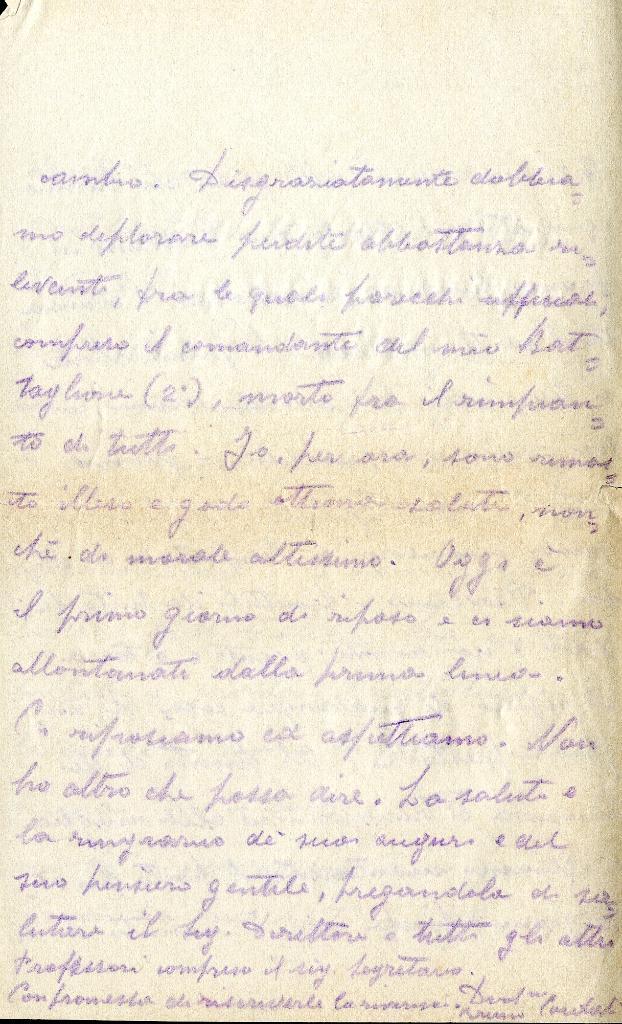 cambio. Disgraziatamente dobbia=
mo deplorare perdite abbastanza ri=
levanti, fra le quali parecchi ufficiali,
compreso il comandante del mio Bat=
taglione (2°), morto fra il rimpian=
to di tutti. Io, per ora, sono rimas=
to illeso e godo ottima salute, non=
chè di morale altissimo. Oggi è
il primo giorno di riposo e ci siamo
allontanati dalla prima linea.
Ci riposiamo ed aspettiamo. Non
ho altro che possa dire. La saluto e
la ringrazio de' suoi auguri e del
suo pensiero gentile, pregandola di sa=
lutare il sig. Direttore e tutti gli altri
Professori compreso il sig. segretario.
Con promessa di riscriverle la riverisco. Dev^mo